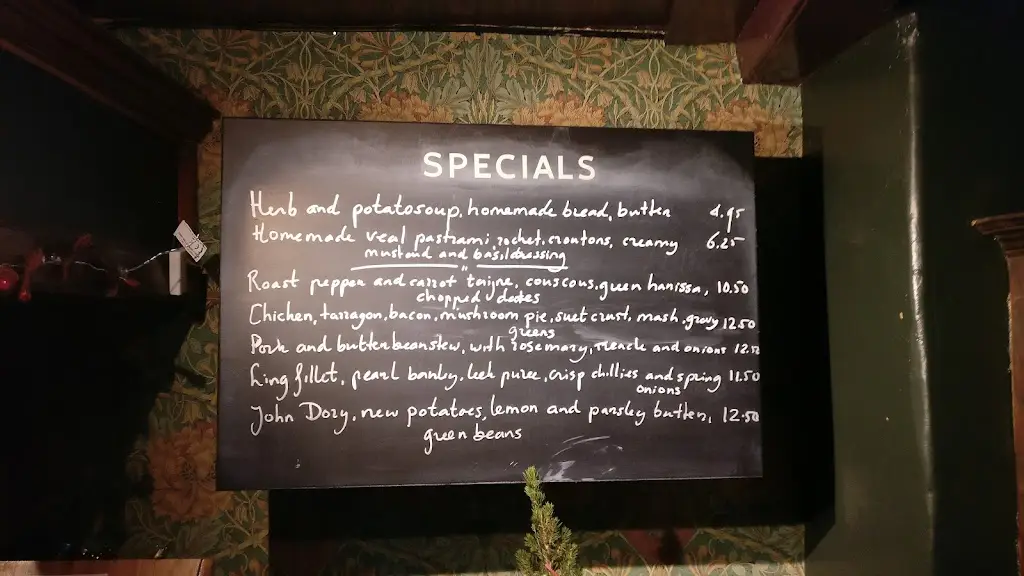 SPECIALS
Herb and potatosoup, homemade bread, butter 4.95
Homemade veal pastrami, rocket, croutons, creamy 6.25
mustard and basil dressing
Roast pepper and carrot tajine, couscous, green harissa, 10.50
chopped dates
Chicken, tarragon, bacon, mushroom pie, suet crust, mash, gravy 12.50
greens
Pork and butterbeanstew, with rosemary, and onions 12.50
Ling fillet, pearl barley, leek puree, crisp chillies and spring 11.50
onions
John Dory, new potatoes, lemon and parsley butter, 12.50
green beans